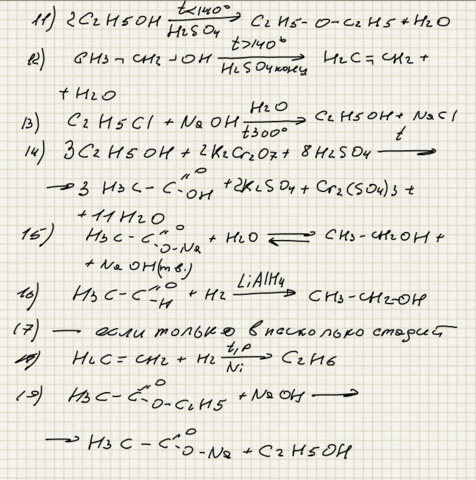 11) 2C2H5OH t<140° H2SO4 → C2H5-O-C2H5 + H2O
12) CH3-CH2-OH t>140° H2SO4 конц → H2C=CH2 +
+ H2O
13) C2H5Cl + NaOH H2O t300° → C2H5OH + NaCl
14) 3C2H5OH + 2K2Cr2O7 + 8H2SO4 t →
→ 3 H3C-C=O OH + 2K2SO4 + Cr2(SO4)3 +
+ 11H2O
15) H3C-C=O O-Na + H2O ⇌ CH3-CH2OH +
+ NaOH(тв.)
16) H3C-C=O H + H2 LiAlH4 → CH3-CH2-OH
17) — если только в несколько стадий
18) H2C=CH2 + H2 t,P Ni → C2H6
19) H3C-C=O O-C2H5 + NaOH →
→ H3C-C=O O-Na + C2H5OH